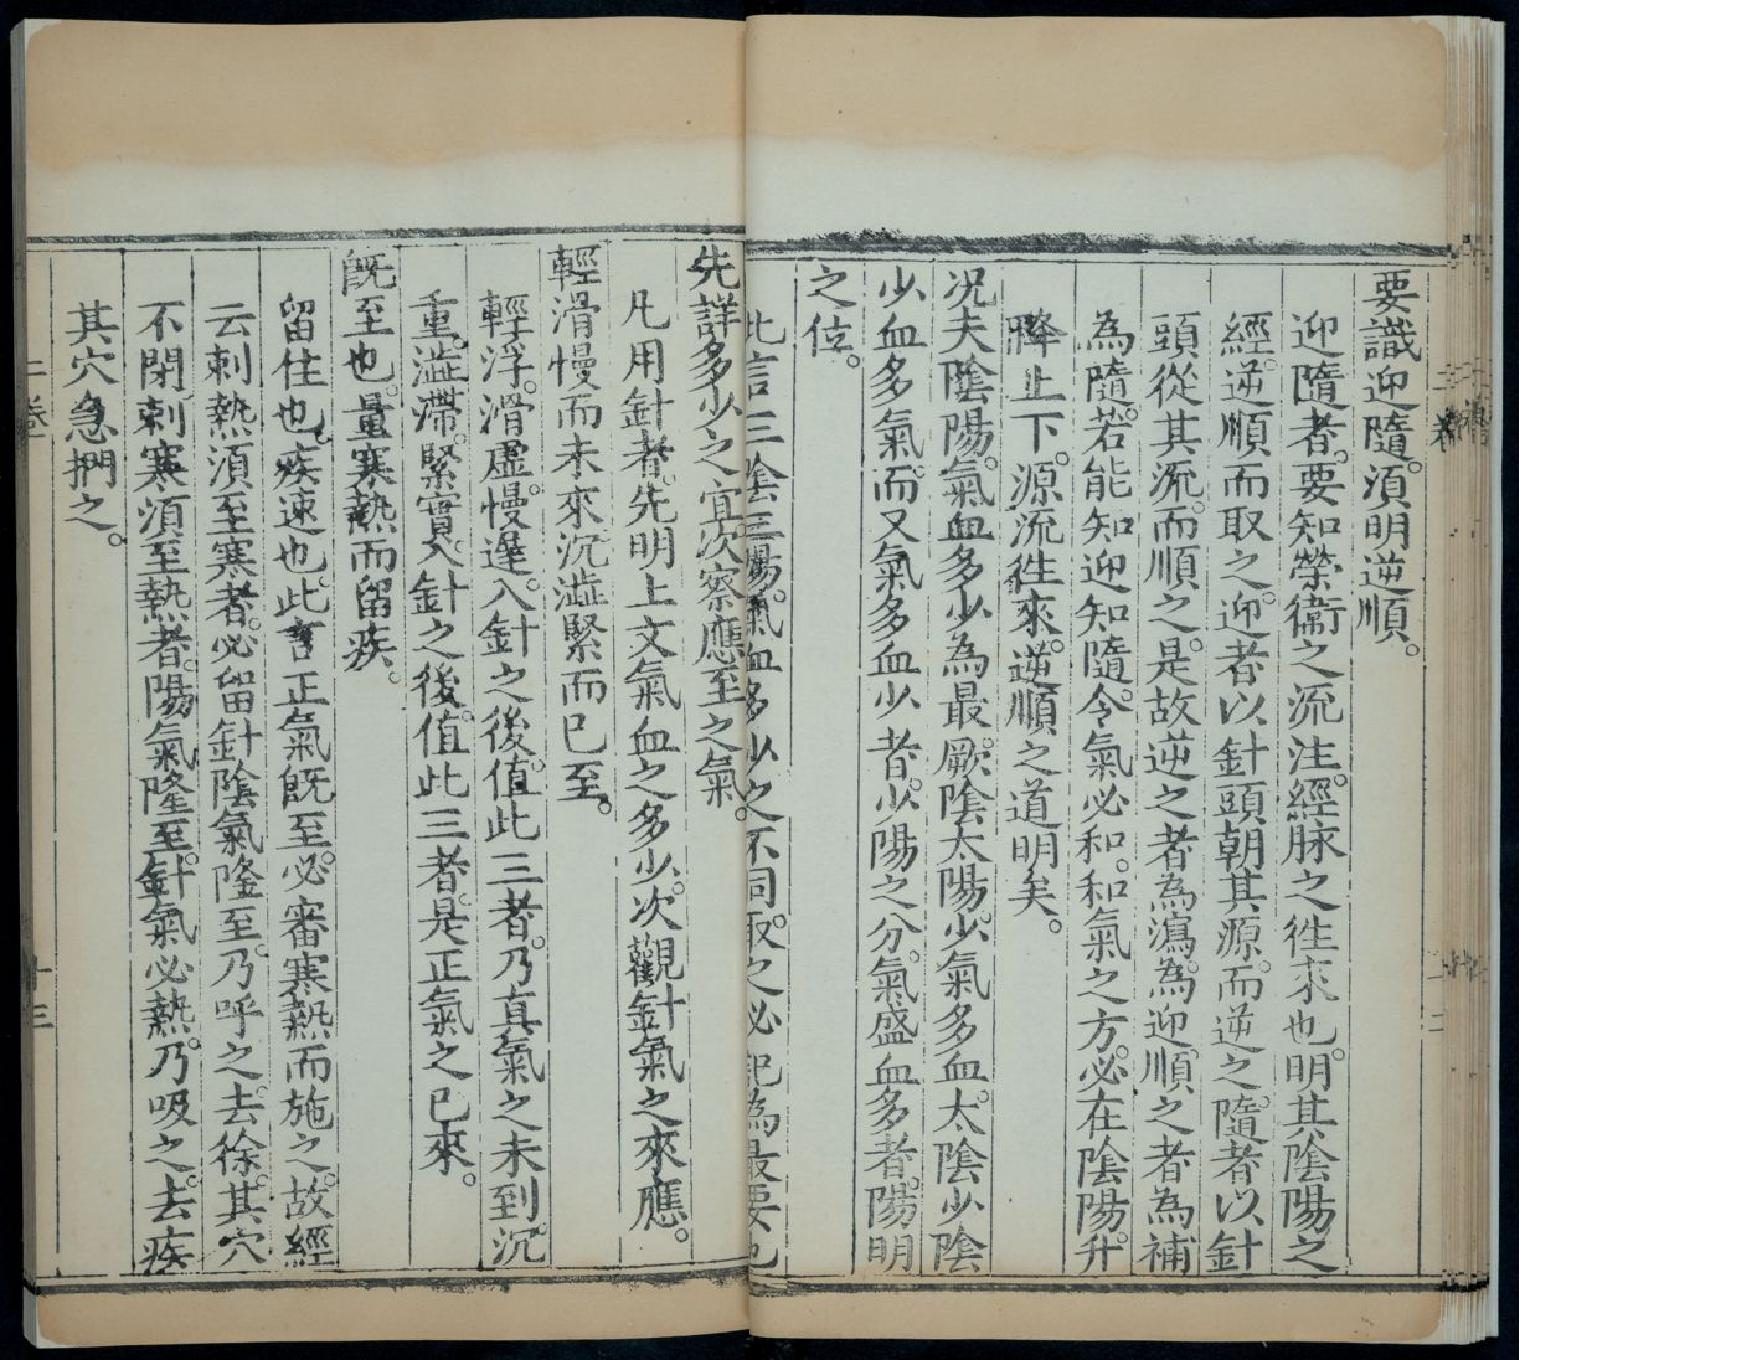 要識迎隨。須明逆順。
迎隨者。要知榮衞之流注。經脉之徃求也。明其陰陽之
經。逆順而取之。迎者以針頭朝其源。而逆之。隨者以針
頭從其流。而順之。是故逆之者為瀉。為迎。順之者為補
為隨。若能知迎知隨。令氣必和。和氣之方。必在陰陽。升
降上下。源流徃來。逆順之道明矣。
况夫陰陽。氣血多少為最。厥陰太陽。少氣多血。太陰少陰
少血多氣。而又氣多血少者。少陽之分。氣盛血多者。陽明
之位。
此言三陰三陽。氣血多少之不同。取之必記為最要也
先詳多少之宜。次察應至之氣。
凡用針者。先明上文氣血之多少。次觀針氣之來應。
輕滑慢而未來。沉澁緊而已至。
輕浮。滑虛。慢遲。入針之後。值此三者。乃真氣之未到。沉
重。澁滯。緊實。入針之後。值此三者。是正氣之已來。
旣至也。量寒熱而留疾。
留住也。疾速也。此言正氣旣至。必審寒熱而施之。故經
云刺熱須至寒者。必留針陰氣隆至。乃呼之。去徐。其穴
不閉。刺寒須至熱者。陽氣隆至。針氣必熱。乃吸之。去疾
其穴急捫之。
二卷
十三